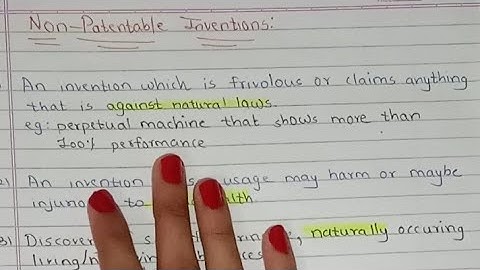 Non-Patentable Inventions:
An invention which is frivolous or claims anything
that is against natural laws.
eg: perpetual machine that shows more than
100% performance
2) An invention usage may harm or maybe
to
3) naturally occuring